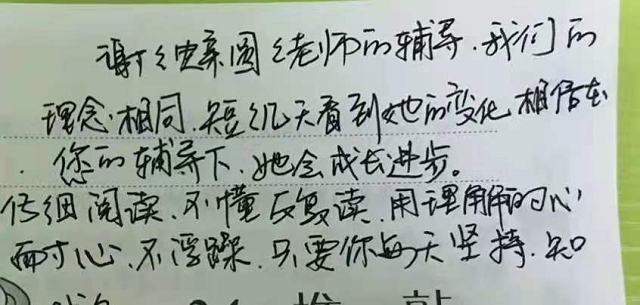 谢谢 圆老师的辅导.我们的
理念相同.短短几天看到她的变化 相信在
你的辅导下.她会成长进步。
仔细阅读.不懂反复读.用理解的心
耐心.不浮躁.只要你每天坚持.知